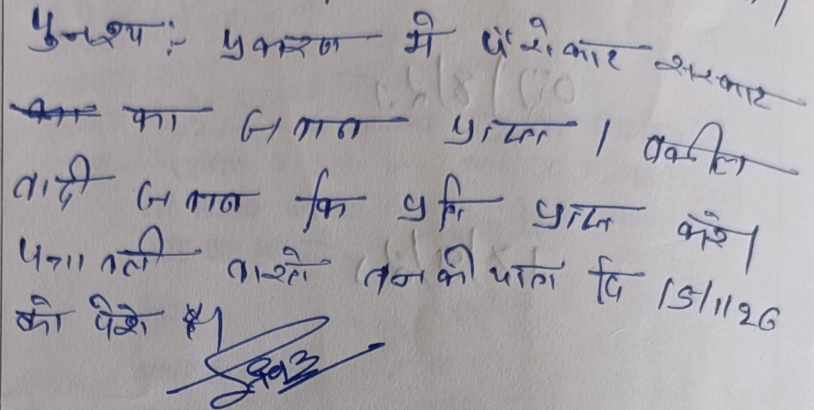 पुनश्चः- प्रकरण मे पैरोकार सरकार
का जवाब प्राप्त । वकील
वादी जवाब कि प्रति प्राप्त करे।
पत्रावली वास्ते तनकीयात दि 15/1/26
को पेश हो।